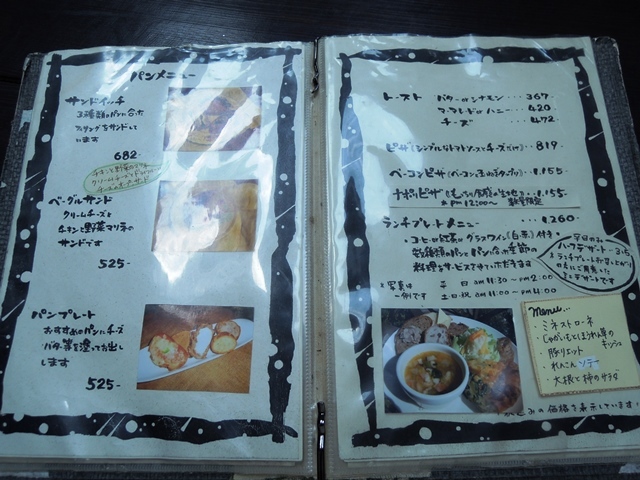 パンメニュー
サンドイッチ
3種類のパンに合う
フィリングをサンドして
います
682-
チキンと野菜のマリネ
クリームチーズと
ベーグルサンド
クリームチーズと
チキンと野菜マリネの
サンドです
525-
パンプレート
おすすめのパンにチーズ
バター等を塗ってお出し
します
525-
トースト バター or シナモン ・・・367-
マーマレード or ハニー ・・・420-
チーズ ・・・472-
ピザ (シンプルなトマトソースとチーズだけ) ・・819-
ベーコンピザ ・・1.155-
ナポリピザ (もっちり厚めの生地) ・・1.155-
＊PM 12:00〜 数量限定
ランチプレートメニュー ・・・1.260-
・コーヒー or 紅茶 or グラスワイン(白・赤)付き
数種類のパンとパンに合う季節の
料理をサービスさせていただきます
＊写真は
一例です
平日 AM 11:30 〜 PM 2:00
土日・祝 AM 11:00 〜 PM 4:00
平日のみ
ハーフデザート
ミニデザートです
Menu...
・ミネストローネ
・じゃがいもとほうれん草の
キッシュ
・豚リエット
・れんこんソテー
・大根と柿のサラダ
の価格を表示しています!